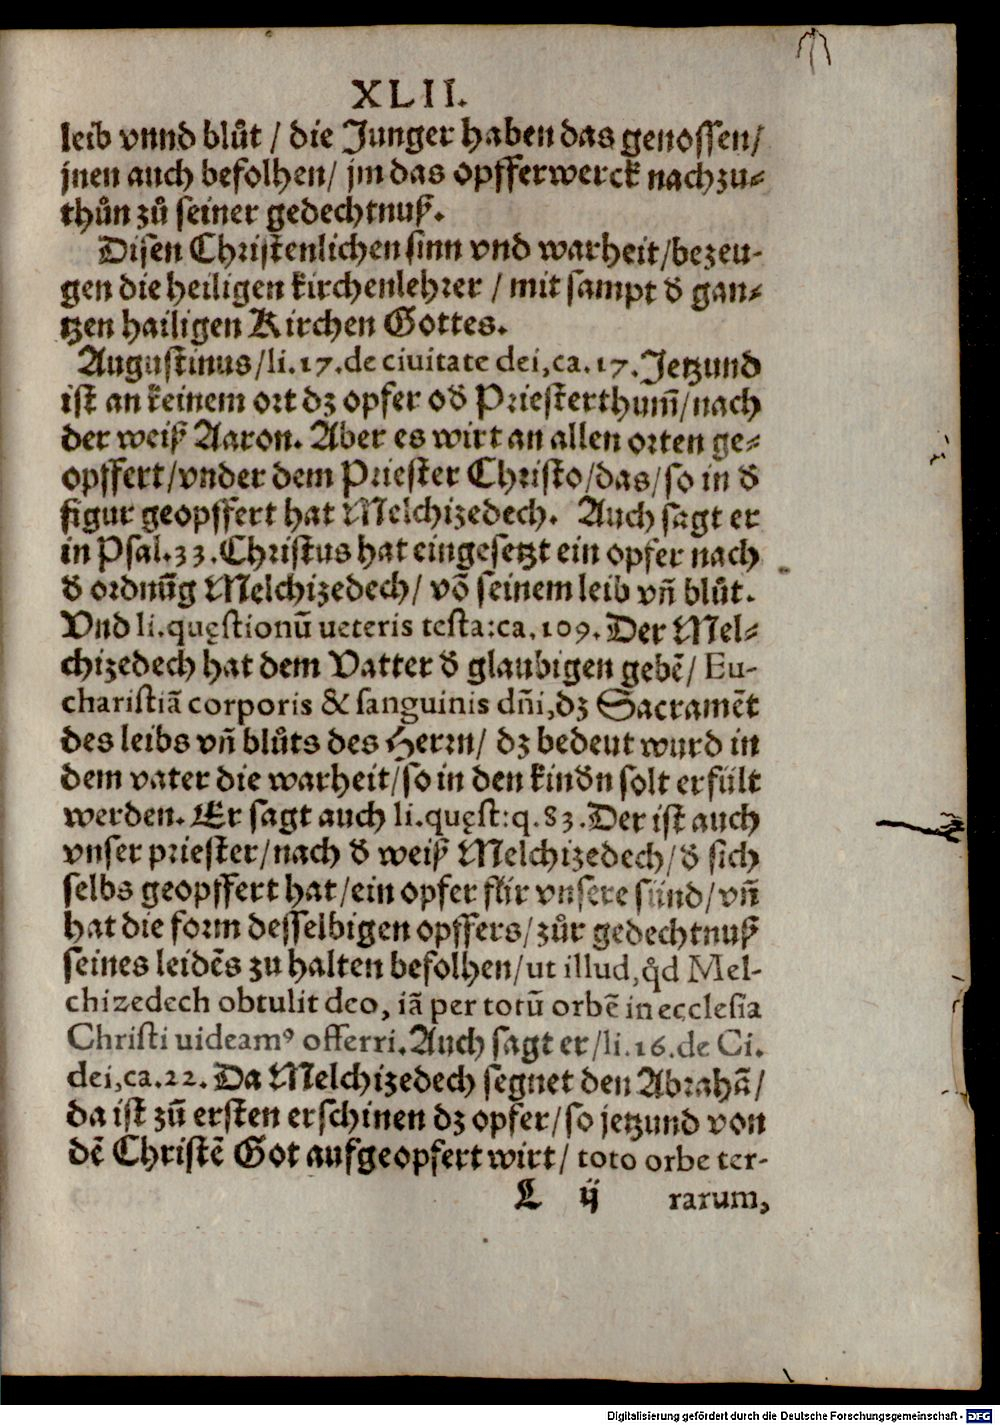 XLII.
leib vnnd blůt / die Junger haben das genossen/
jnen auch befolhen/ jm das opfferwerck nachzu-
thůn zů seiner gedechtnuß.
Disen Christenlichen sinn vnd warheit/bezeu-
gen die heiligen kirchenlehrer / mit sampt d̕ gan-
tzen hailigen Kirchen Gottes.
Augustinus/li.17.de ciuitate dei,ca.17.Jetzund
ist an keinem ort dz opfer od̕ Priesterthum̃/nach
der weiß Aaron. Aber es wirt an allen orten ge-
opffert/vnder dem Priester Christo/das/so in d̕
figur geopffert hat Melchizedech. Auch sagt er
in Psal.33.Christus hat eingesetzt ein opfer nach
d̕ ordnũg Melchizedech/ võ seinem leib vñ blůt.
Vnd li.quęstionũ ueteris testa:ca.109.Der Mel-
chizedech hat dem Vatter d̕ glaubigen gebẽ/ Eu-
charistiã corporis & sanguinis dñi,dz Sacramẽt
des leibs vñ blůts des Herrn/ dz bedeut wurd in
dem vater die warheit/so in den kind̕n solt erfült
werden. Er sagt auch li.quęst:q.83.Der ist auch
vnser priester/nach d̕ weiß Melchizedech/d̕ sich
selbs geopffert hat/ein opfer für vnsere sünd/vñ
hat die form desselbigen opffers/zůr gedechtnuß
seines leidẽs zu halten befolhen/ut illud,qd̊ Mel-
chizedech obtulit deo, iã per totũ orbẽ in ecclesia
Christi uideamꝰ offerri.Auch sagt er/li.16.de Ci.
dei,ca.22.Da Melchizedech segnet den Abrahã/
da ist zũ ersten erschinen dz opfer/so jetzund von
dẽ Christẽ Got aufgeopfert wirt/ toto orbe ter-
L ij rarum,
Digitalisierung gefördert durch die Deutsche Forschungsgemeinschaft - DFG